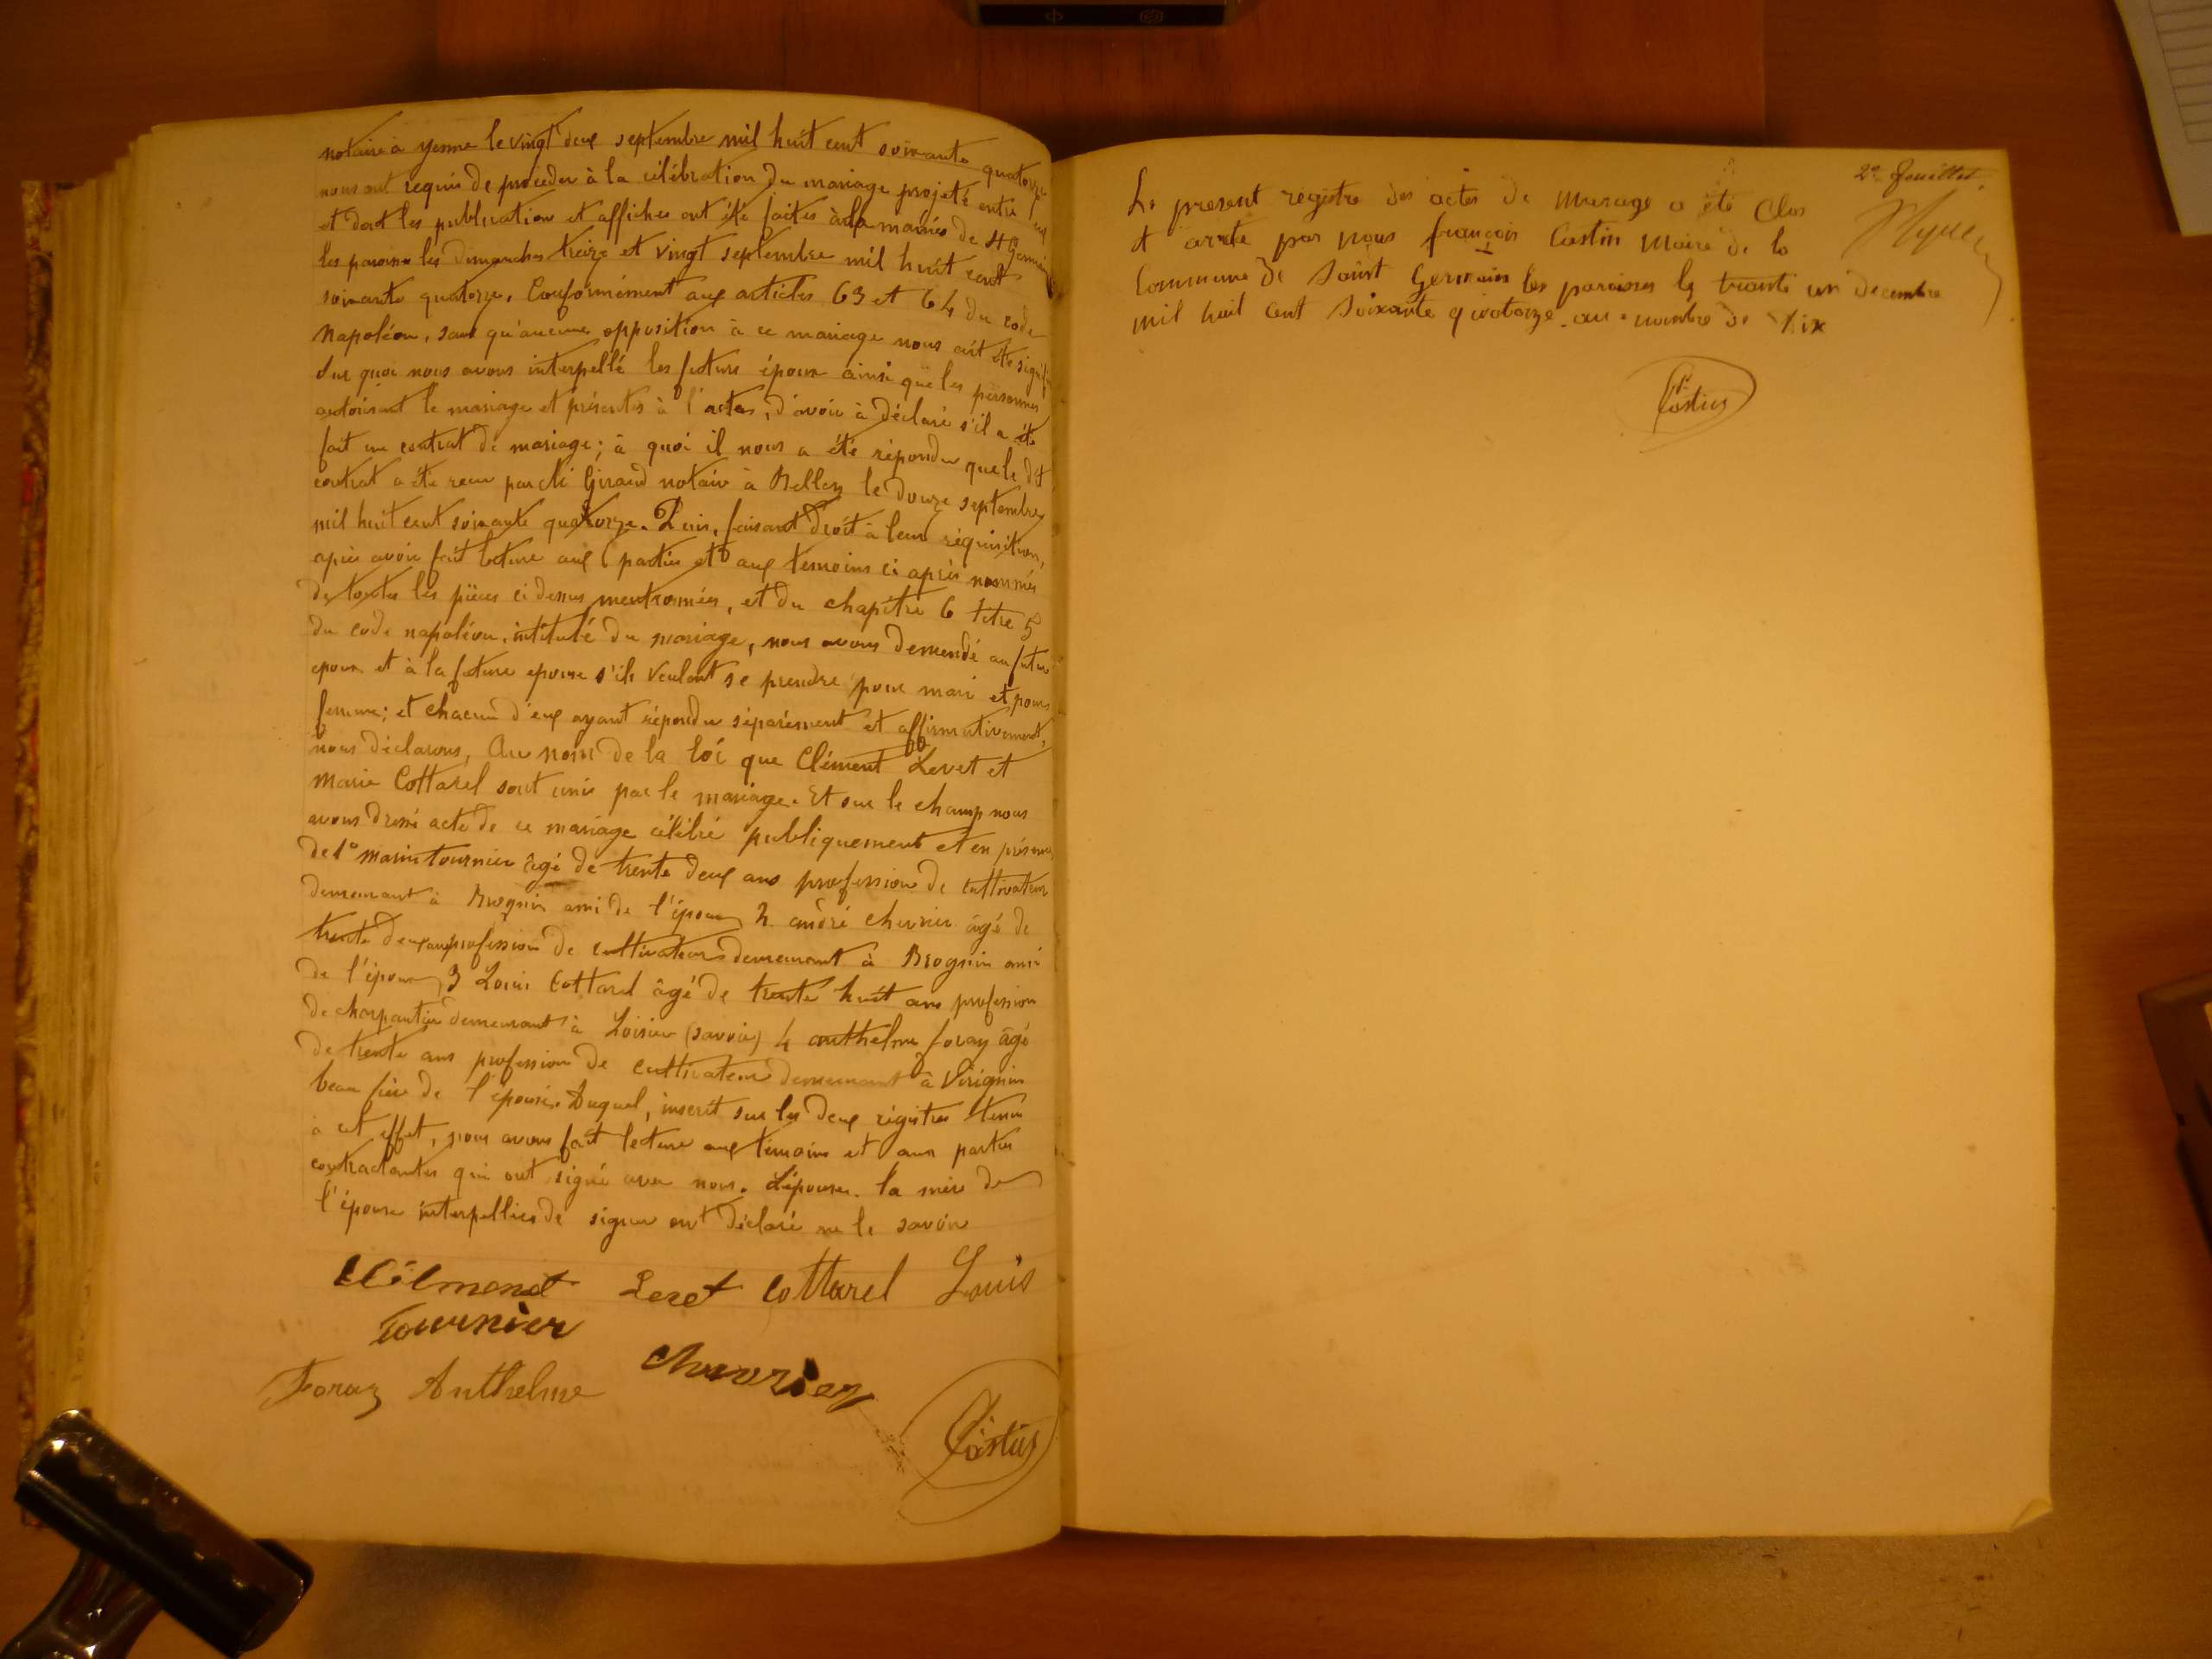 notaire à yenne le vingt deux septembre mil huit cent soixante quatorze
nous ont requis de procéder à la célébration du mariage projeté entre eux
et dont les publication et affiches ont été faites à la mairie de St Germain
les paroisse les dimanches treize et vingt septembre mil huit cent
soixante quatorze. Conformément aux articles 63 et 64 du code
Napoléon, sans qu'aucune opposition à ce mariage nous ait été signifi
sur quoi nous avons interpellé les futurs époux ainsi que les personnes
autorisant le mariage et présentes à l'actes, d'avoir à déclaré s'il a été
fait un contrat de mariage; à quoi il nous a été répondu que le dit
contrat a été recu par Mi Giraud notaire à Belley le douze septembre
mil huit cent soixante quatorze. Puis, faisant droit à leur réquisition,
après avoir fait lecture aux parties et aux témoins ci après nommés
de toutes les pièces ci dessus mentionnées, et du chapitre 6 titre 5
du code napoléon, intitulé du mariage, nous avons demandé au futur
epoux et à la future epouse s'ils veulent se prendre pour mari et pour
femme; et chacun d'eux ayant répondu séparément et affirmativement,
nous déclarons, Au nom de la loi que Clément Levet et
Marie Cottarel sont unis par le mariage. Et sur le champ nous
avons dressé acte de ce mariage célébré publiquement et en présence
de 1º Marin tournier âgé de trente deux ans profession de cultivateur
demeurant à Brognin ami de l'époux 2 andré chevrier âgé de
trente deux ans profession de cultivateur demeurant à Brognin ami
de l'époux, 3 Louis Cottarel âgé de trente huit ans profession
de charpentier demeurant à Loisieu (savoie) 4 anthelme foray âgé
de trente ans profession de cultivateur demeurant à Virignin
beau frère de l'épouse. Duquel, inscrit sur les deux registres tenus
à cet effet, nous avons fait lecture aux témoins et aux parties
contractantes qui ont signé avec nous. L'épouse. la mère de
l'épouse interpellées de signer ont déclaré ne le savoir
Clément Levet Cottarel Louis
Tournier
Chevrier
Foraz Anthelme
Castin
2e feuillet.
Le present registre des actes de mariage a été Clos
et arreté par nous françois Castin Maire de la
Commune de Saint Germain les paroisses le trante un decembre
mil huit cent soixante quatorze au nombre de dix
Castin